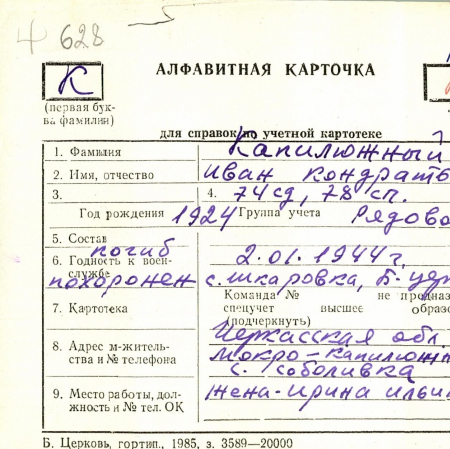 4 628
К
АЛФАВИТНАЯ КАРТОЧКА
(первая бук-
ва фамилии)
для справок по учетной картотеке
1. Фамилия Капилюжный
2. Имя, отчество Иван Кондрать
3. 4. 74 сд, 78 сп.
Год рождения 1924 Группа учета Рядово
5. Состав
погиб 2.01.1944 г.
6. Годность к воен-
службе
похоронен с. Шкаровка, Б-Цер
Команда № не предназ
7. Картотека спецучет высшее образо
(подчеркнуть)
Черкасская обл.
8. Адрес м-житель-
ства и № телефона Мокро-Капилюжн
с. Соболивка
9. Место работы, дол-
жность и № тел. ОК жена-Ирина Ильин
Б. Церковь, гортип., 1985, з. 3589—20000